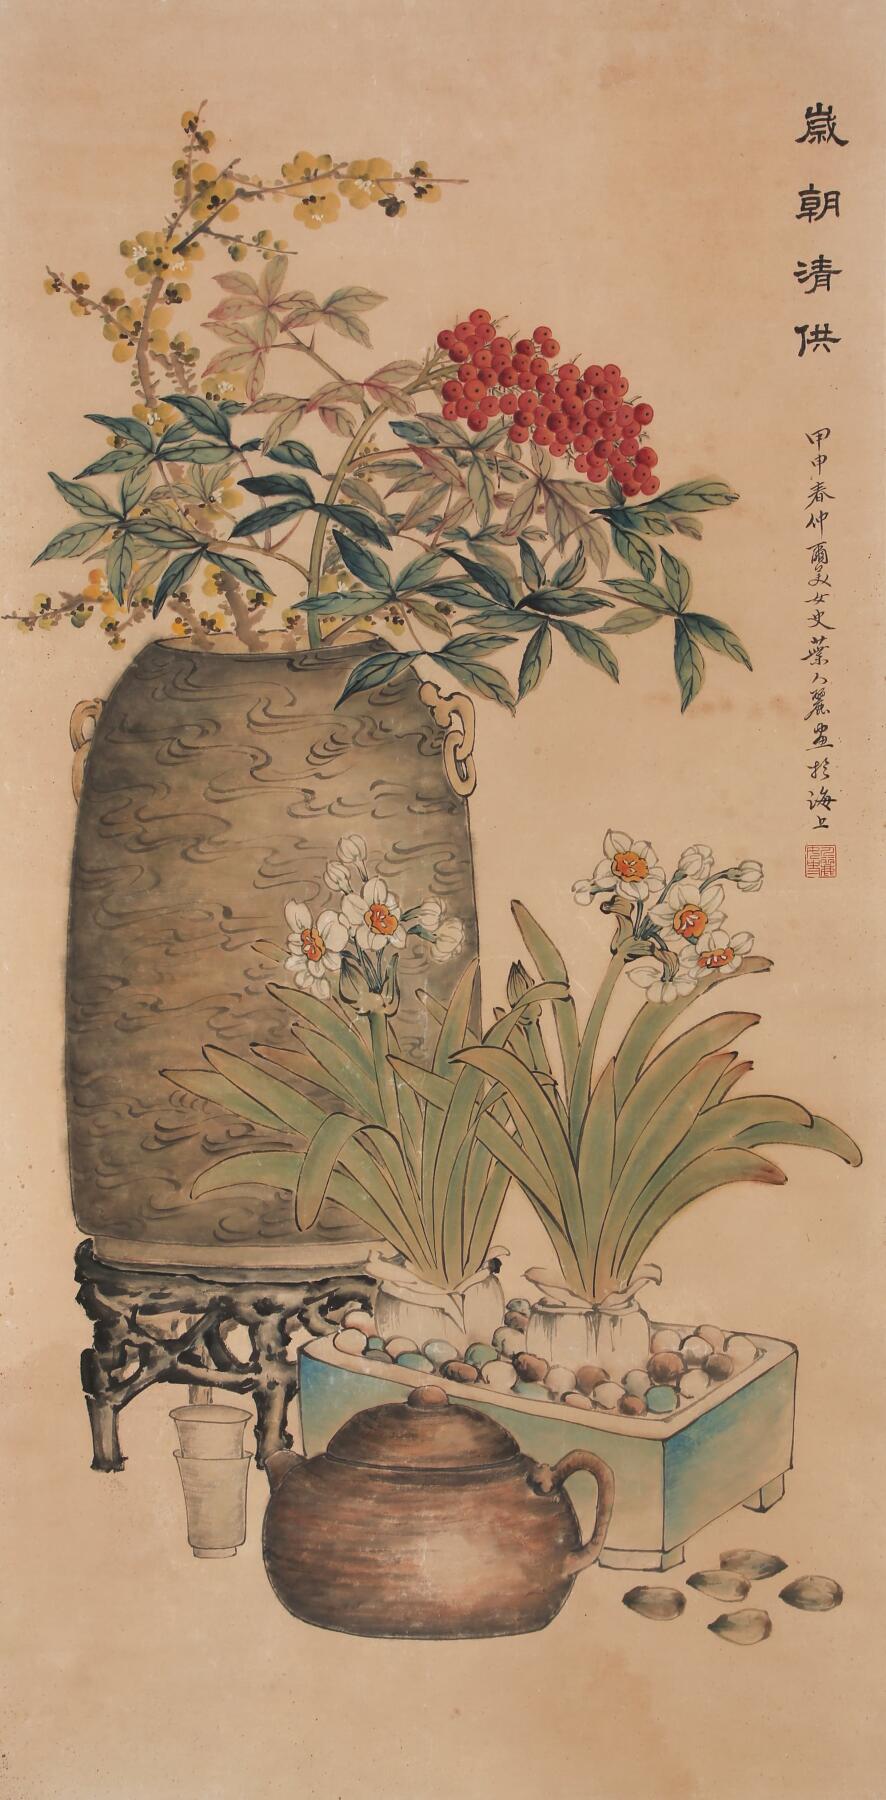 歲朝清供
甲申春仲爾美女史葉人麗畫於海上